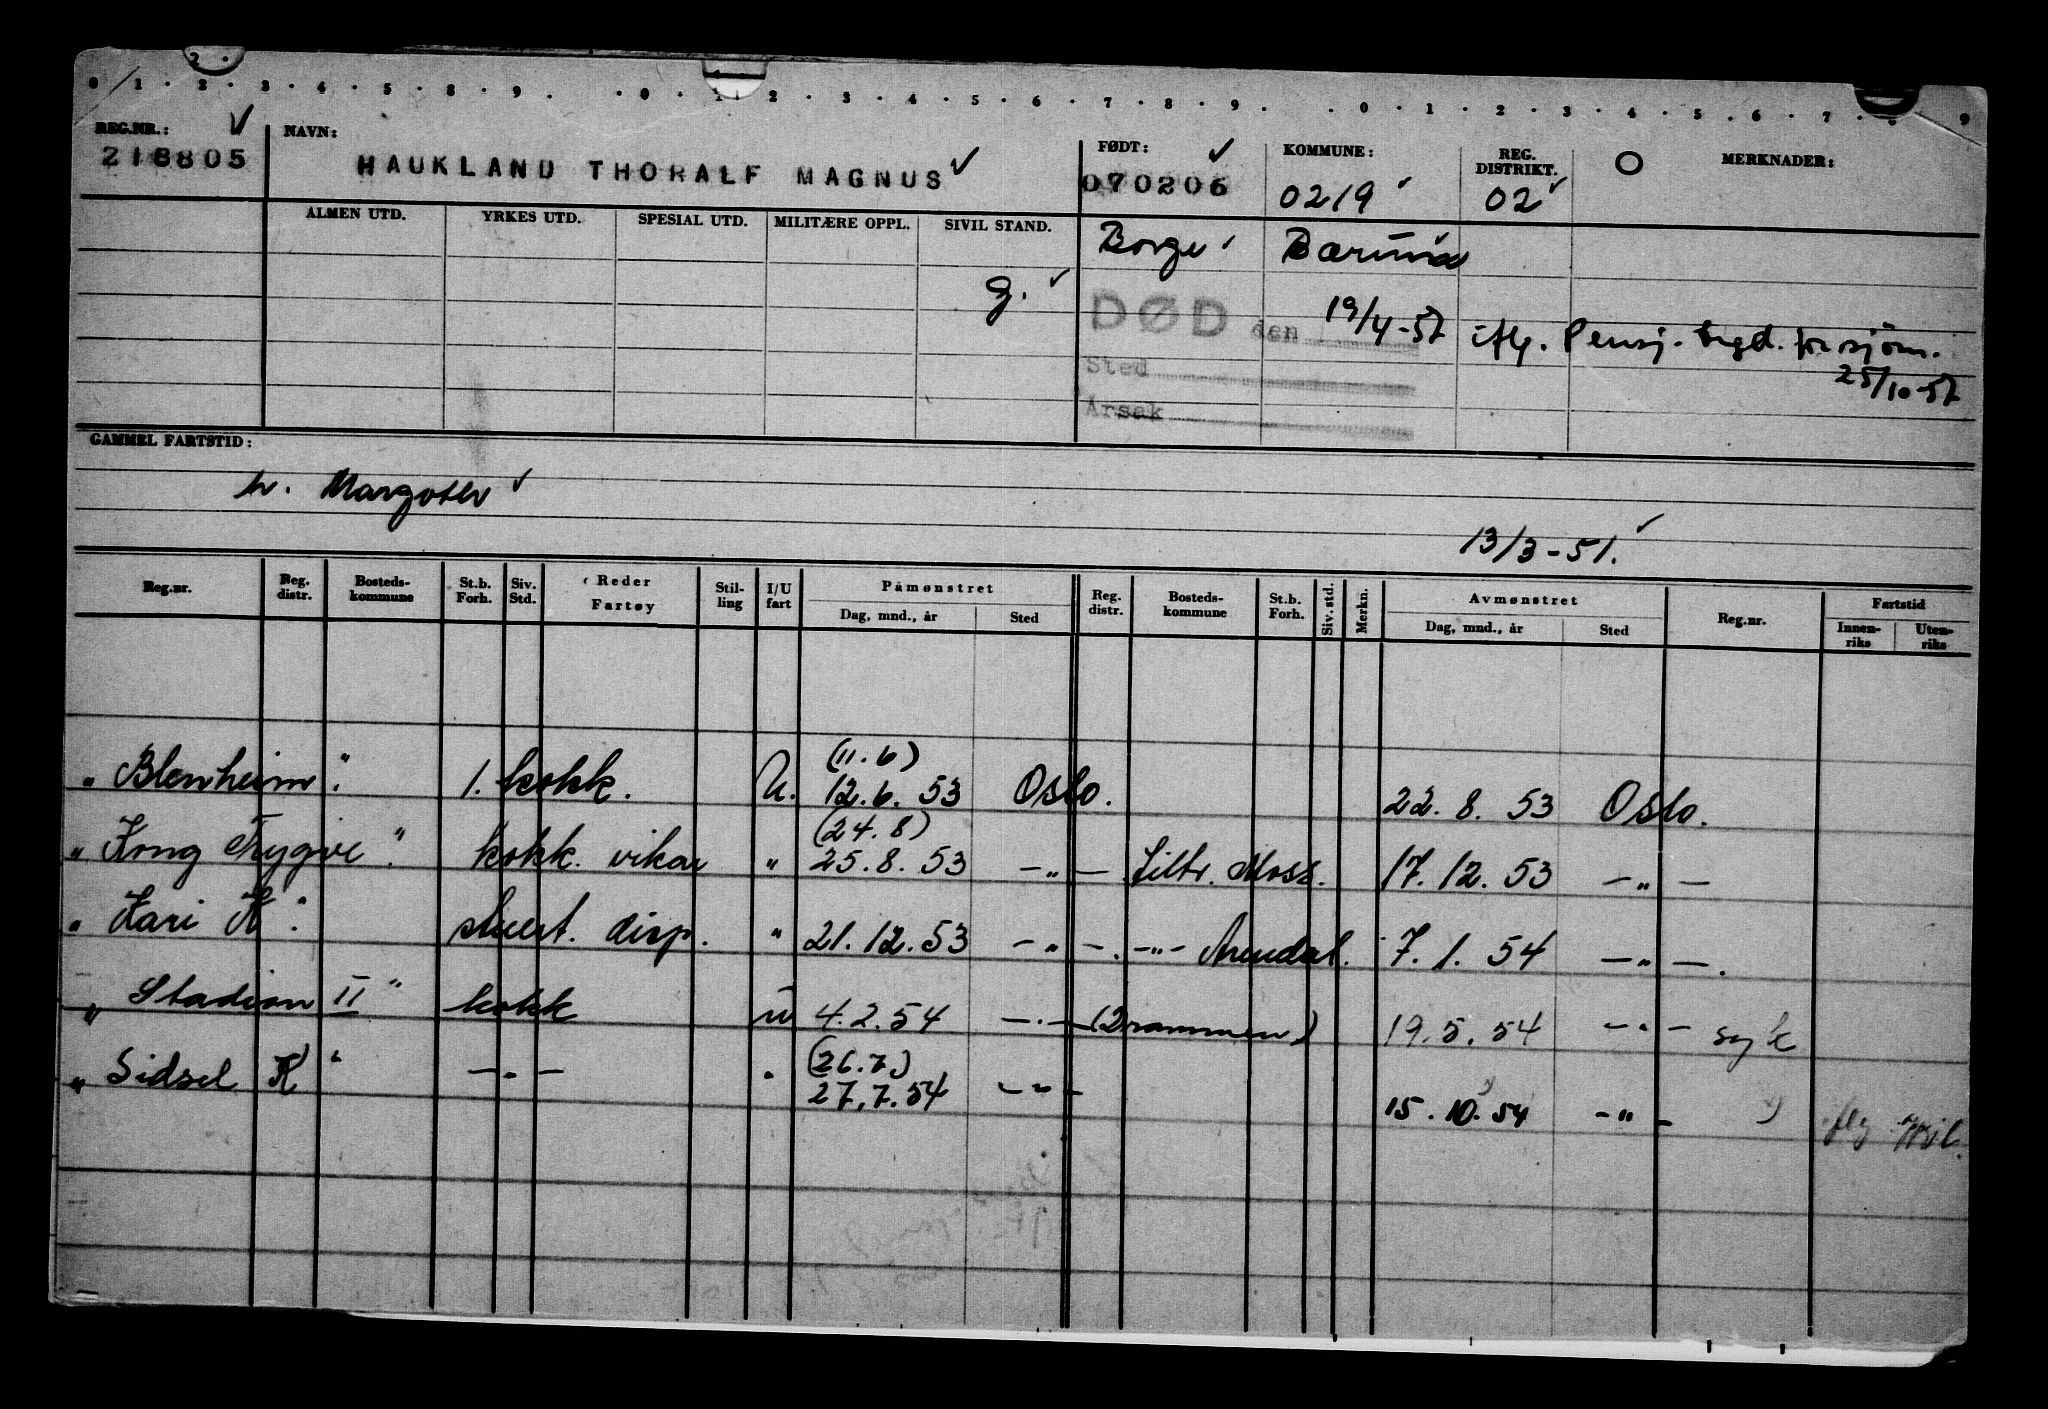 0 1 · 2 · 3 · 4 · 5 · 8 · 9 · · 0 · 1 · 2 · 3 · 4 · 5 · 6 · 7 · 8 · 9 · · 0 · 1 · 2 · 3 · 4 · 5 · 6 · 7 · 9
REG.NR.: ✓ NAVN: FØDT: ✓ KOMMUNE: REG. DISTRIKT. O MERKNADER:
218805 HAUKLAND THORALF MAGNUS ✓ 070206 0219 ✓ 02 ✓
ALMEN UTD. YRKES UTD. SPESIAL UTD. MILITÆRE OPPL. SIVIL STAND. Borge ✓ Bærum
g. ✓ DØD den 19/4-57 iflg. Pensj. trygd. for sjöm.
Sted 25/10-57
Årsak
GAMMEL FARTSTID:
h. Margoth ✓
13/3-51. ✓
Reg.nr. Reg. distr. Bosteds- kommune St.b. Forh. Siv. Std. Reder Fartøy Stil- ling I/U fart Påmønstret Reg. distr. Bosteds- kommune St.b. Forh. Siv. std. Merkn. Avmønstret Reg.nr. Fartstid
Dag, mnd., år Sted Dag, mnd., år Sted Innen- riks Uten- riks
(11.6)
" Blenheim " 1. kokk. U. 12.6.53 Oslo. 22.8.53 Oslo.
(24.8)
" Kong Trygve " kokk. vikar " 25.8.53 -"- tiltr. Moss. 17.12.53 -"-
" Kari K " stuert. disp. " 21.12.53 -"-. -"- Arendal. 7.1.54 -"-.
" Stadion II " kokk u 4.2.54 -"- (Drammen) 19.5.54 -"- syk
(26.7)
" Sidsel K " -"- " 27.7.54 -"- 15.10.54 -"-